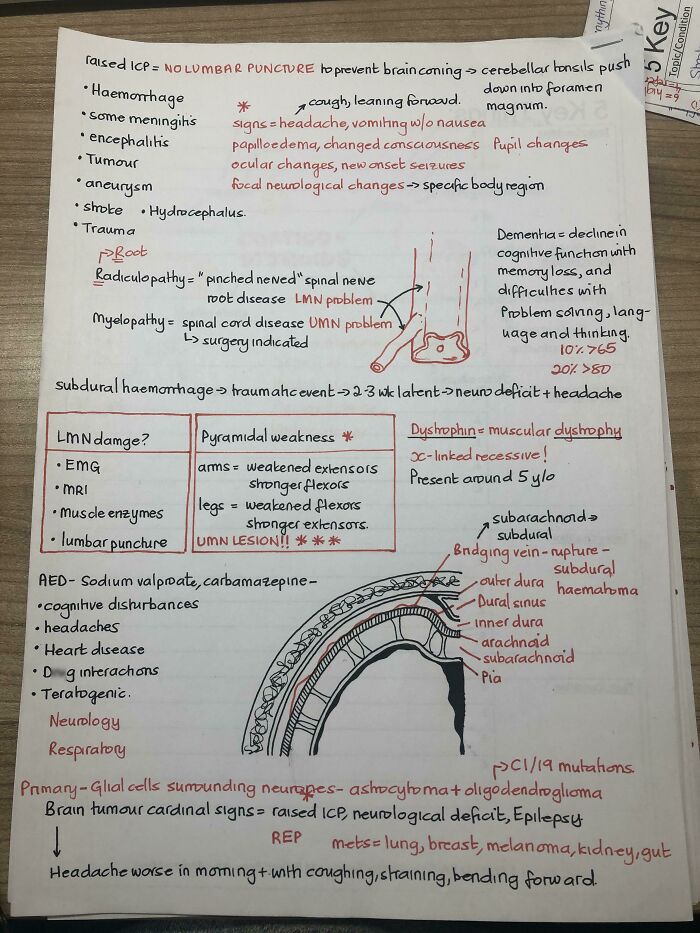 raised ICP = NO LUMBAR PUNCTURE to prevent brain coning → cerebellar tonsils push
down into foramen
magnum.
• Haemorrhage
• some meningitis
• encephalitis
• Tumour
• aneurysm
• stroke • Hydrocephalus.
• Trauma
* → cough, leaning forward.
signs = headache, vomiting w/o nausea
papilloedema, changed consciousness Pupil changes
ocular changes, new onset seizures
focal neurological changes → specific body region
Root
Radiculopathy = "pinched nerved" spinal nerve
root disease LMN problem
Myelopathy = spinal cord disease UMN problem
↳ surgery indicated
Dementia = decline in
cognitive function with
memory loss, and
difficulties with
Problem solving, lang-
uage and thinking.
10% >65
20% >80
subdural haemorrhage → traumatic event → 2-3 wk latent → neuro deficit + headache
LMN damge?
• EMG
• MRI
• Muscle enzymes
• lumbar puncture
Pyramidal weakness *
arms = weakened extensors
stronger flexors
legs = weakened flexors
stronger extensors.
UMN LESION!! * * *
Dystrophin = muscular dystrophy
x-linked recessive!
Present around 5 y/o
AED - Sodium valproate, carbamazepine -
• cognitive disturbances
• headaches
• Heart disease
• D g interactions
• Teratogenic.
Neurology
Respiratory
subarachnoid →
subdural
Bridging vein - rupture -
subdural
haematoma
outer dura
Dural sinus
inner dura
arachnoid
subarachnoid
Pia
→ C1/19 mutations.
Primary - Glial cells surrounding neurones - astrocytoma + oligodendroglioma
* Brain tumour cardinal signs = raised ICP, neurological deficit, Epilepsy
REP
mets = lung, breast, melanoma, kidney, gut
↓
Headache worse in morning + with coughing, straining, bending forward.
5 Key
Topic/Condition